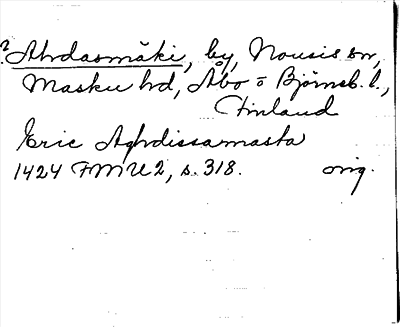 ? Ahdasmäki, by, Nousis sn,
Masku hd, Åbo o Björneb. l.,
Finland
Eric Aghdissamasta
1424 FMU 2, s. 318. orig.